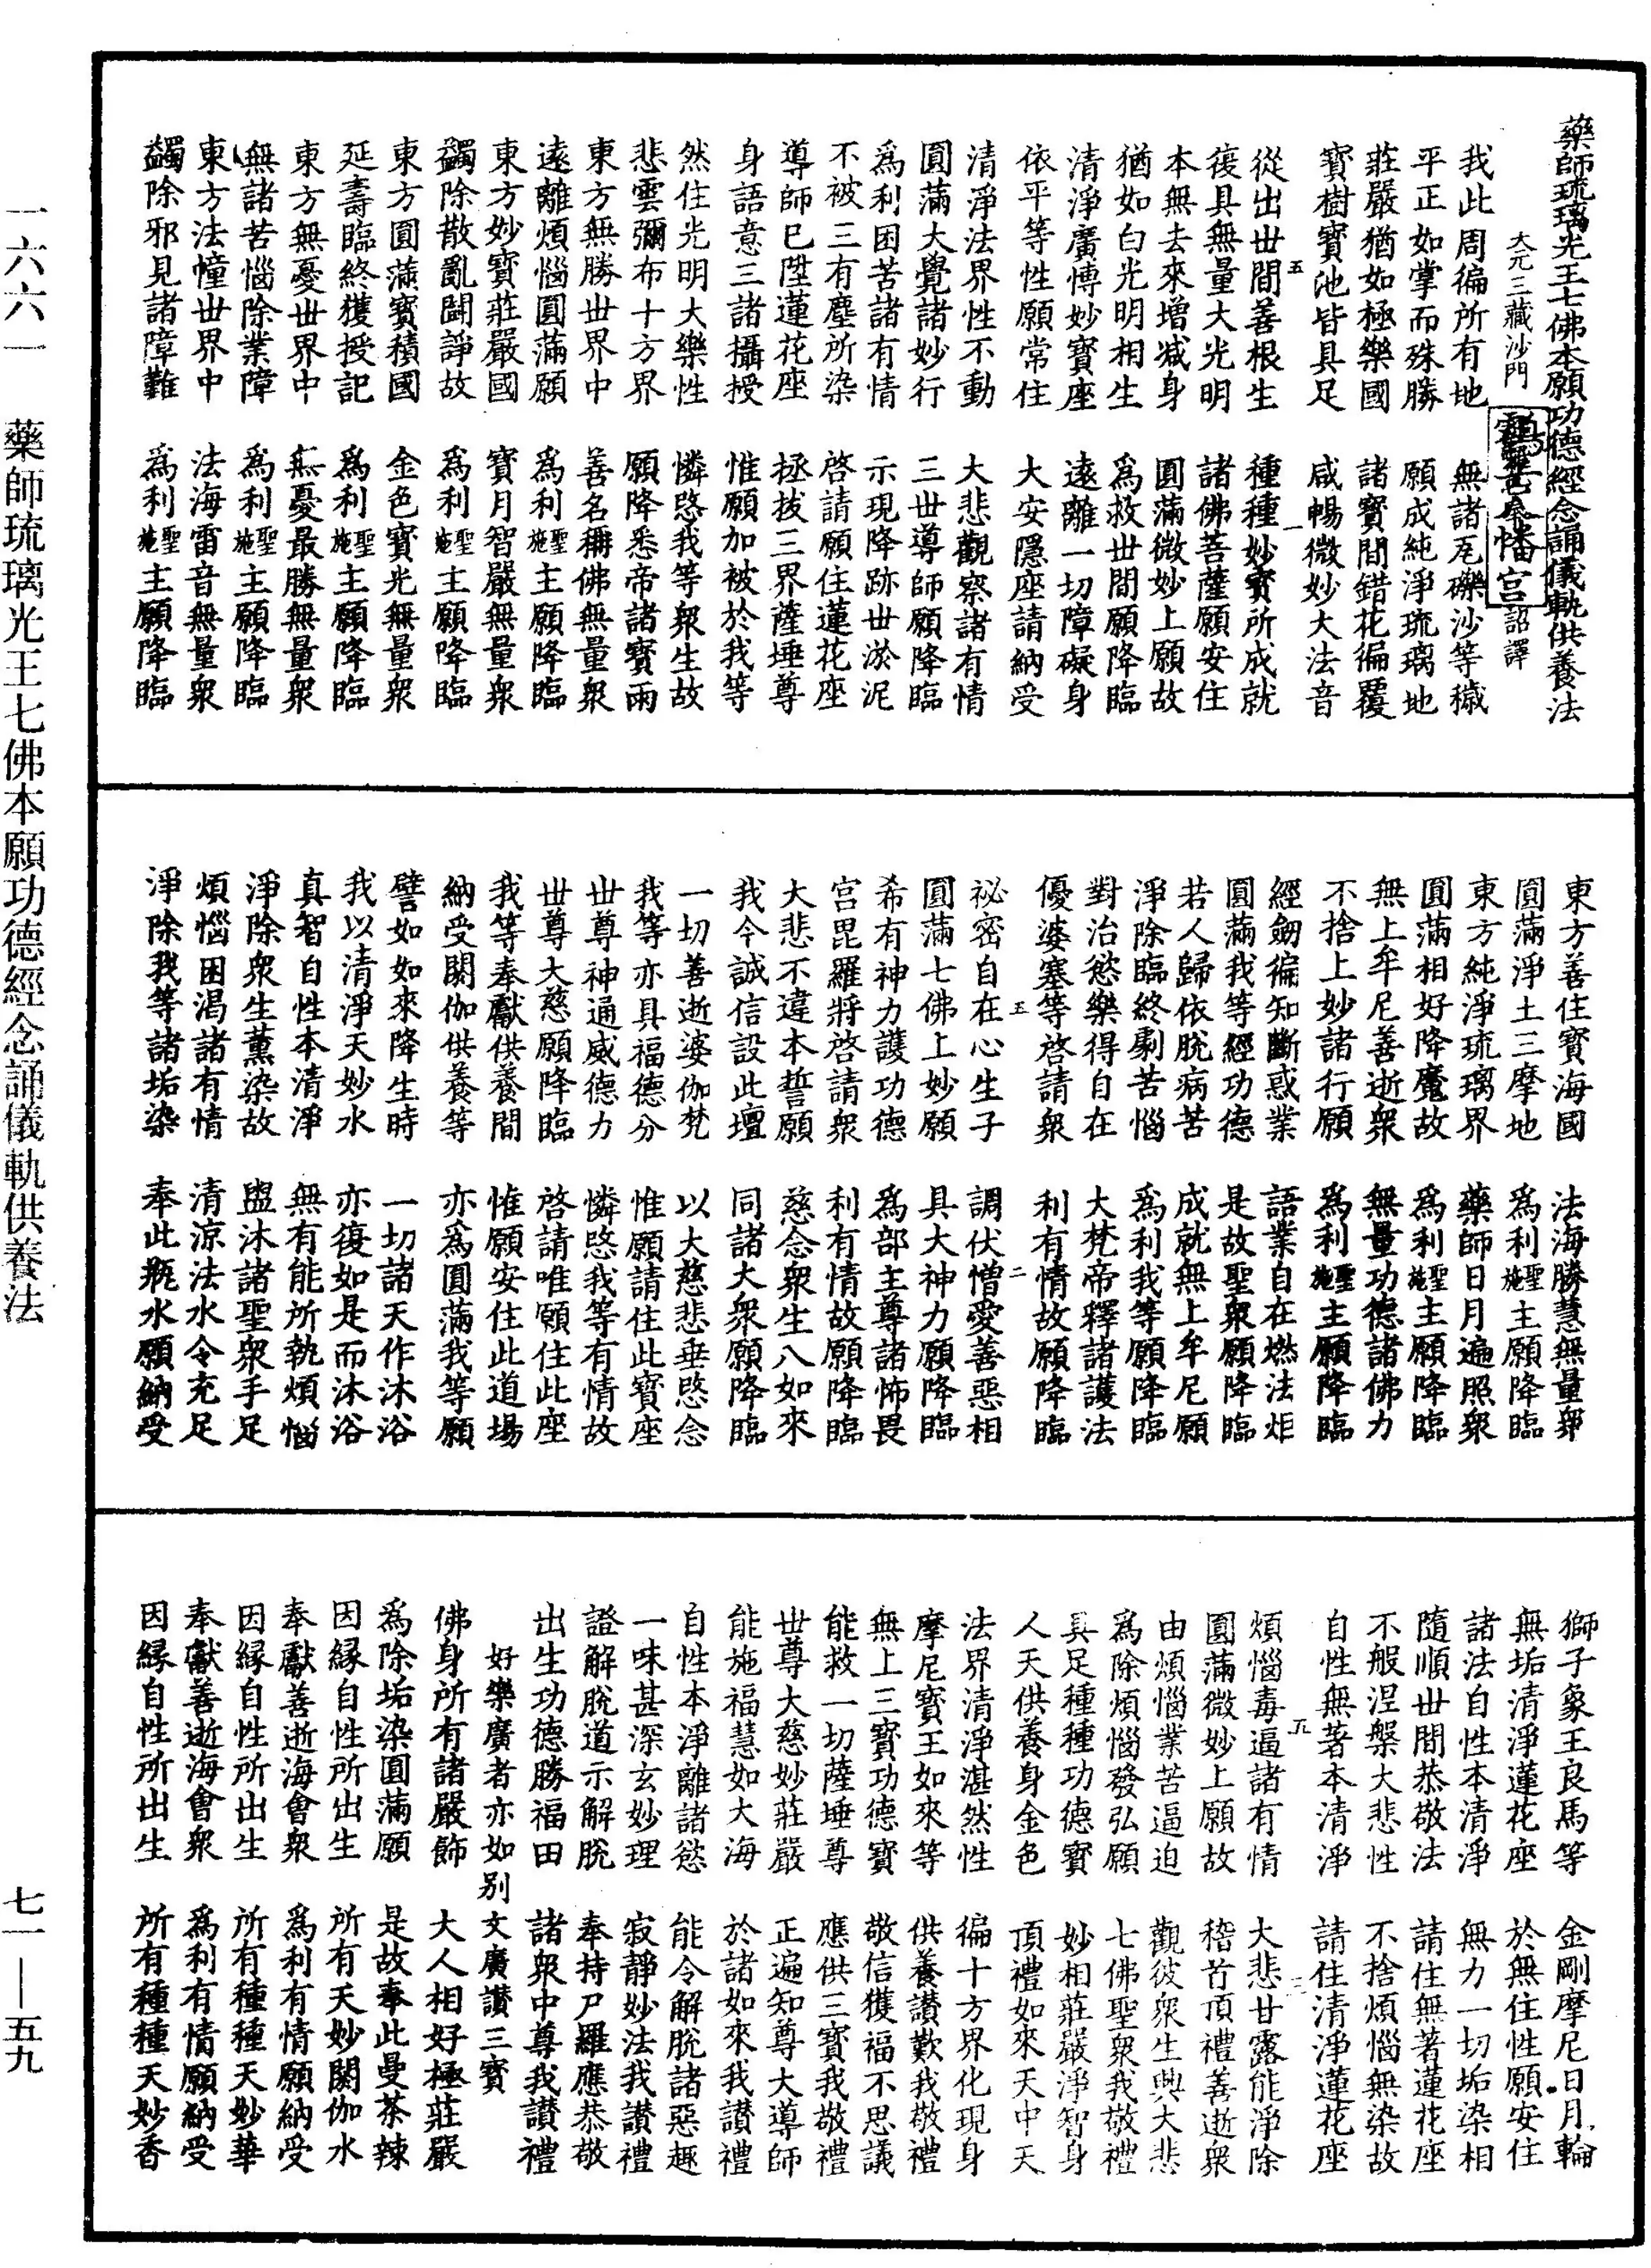 藥師琉璃光王七佛本願功德經念誦儀軌供養法
大元三藏沙門 詔譯
我此周徧所有地 無諸瓦礫沙等穢
平正如掌而殊勝 願成純淨琉璃地
莊嚴猶如極樂國 諸寶間錯花徧覆
寶樹寶池皆具足 咸暢微妙大法音
從出丗間善根生 種種妙寶所成就
復具無量大光明 諸佛菩薩願安住
本無去來增減身 圓滿微妙上願故
猶如白光明相生 為救丗間願降臨
清淨廣愽妙寶座 遠離一切障礙身
依平等性願常住 大安隱座請納受
清淨法界性不動 大悲觀察諸有情
圓滿大覺諸妙行 三丗導師願降臨
為利困苦諸有情 示現降跡丗淤泥
不被三有塵所染 啓請願住蓮花座
導師已陞蓮花座 拯拔三界薩埵尊
身語意三諸攝授 惟願加被於我等
然住光明大樂性 憐愍我等衆生故
悲雲彌布十方界 願降悉帝諸寶雨
東方無勝丗界中 善名稱佛無量衆
遠離煩惱圓滿願 為利聖施主願降臨
東方妙寶莊嚴國 寶月智嚴無量衆
蠲除散亂鬪諍故 為利聖施主願降臨
東方圓滿寶積國 金色寶光無量衆
延壽臨終獲授記 為利聖施主願降臨
東方無憂丗界中 無憂最勝無量衆
無諸苦惱除業障 為利聖施主願降臨
東方法幢丗界中 法海雷音無量衆
蠲除邪見諸障難 為利聖施主願降臨
東方善住寶海國 法海勝慧無量衆
圓滿淨土三摩地 為利聖施主願降臨
東方純淨琉璃界 藥師日月遍照衆
圓滿相好降魔故 為利聖施主願降臨
無上牟尼善逝衆 無量功德諸佛力
不捨上妙諸行願 為利聖施主願降臨
經劒徧知斷惑業 語業自在燃法炬
圓滿我等經功德 是故聖衆願降臨
若人歸依脫病苦 成就無上牟尼願
淨除臨終劇苦惱 為利我等願降臨
對治慾樂得自在 大梵帝釋諸護法
優婆塞等啓請衆 利有情故願降臨
祕密自在心生子 調伏憎愛善惡相
圓滿七佛上妙願 具大神力願降臨
希有神力護功德 為部主尊諸怖畏
宮毘羅將啓請衆 利有情故願降臨
大悲不違本誓願 慈念衆生八如來
我今誠信設此壇 同諸大衆願降臨
一切善逝婆伽梵 以大慈悲垂愍念
我等亦具福德分 惟願請住此寶座
丗尊神通威德力 憐愍我等有情故
丗尊大慈願降臨 啓請唯願住此座
我等奉獻供養間 惟願安住此道場
納受閼伽供養等 亦為圓滿我等願
譬如如來降生時 一切諸天作沐浴
我以清淨天妙水 亦復如是而沐浴
真智自性本清淨 無有能所執煩惱
淨除衆生薰染故 盥沐諸聖衆手足
煩惱困渴諸有情 清涼法水令充足
淨除我等諸垢染 奉此瓶水願納受
獅子象王良馬等 金剛摩尼日月輪
無垢清淨蓮花座 於無住性願安住
諸法自性本清淨 無力一切垢染相
隨順丗間恭敬法 請住無著蓮花座
不般涅槃大悲性 不捨煩惱無染故
自性無著本清淨 請住清淨蓮花座
煩惱毒逼諸有情 大悲甘露能淨除
圓滿微妙上願故 稽首頂禮善逝衆
由煩惱業苦逼迫 觀彼衆生興大悲
為除煩惱發弘願 七佛聖衆我敬禮
具足種種功德寶 妙相莊嚴淨智身
人天供養身金色 頂禮如來天中天
法界清淨湛然性 徧十方界化現身
摩尼寶王如來等 供養讚歎我敬禮
無上三寶功德寶 敬信獲福不思議
能救一切薩埵尊 應供三寶我敬禮
丗尊大慈妙莊嚴 正遍知尊大導師
能施福慧如大海 於諸如來我讚禮
自性本淨離諸慾 能令解脫諸惡趣
一味甚深玄妙理 寂靜妙法我讚禮
證解脫道示解脫 奉持尸羅應恭敬
出生功德勝福田 諸衆中尊我讚禮
好樂廣者亦如别文廣讃三寶
佛身所有諸嚴飾 大人相好極莊嚴
為除垢染圓滿願 是故奉此曼荼辣
因緣自性所出生 所有天妙閼伽水
奉獻善逝海會衆 為利有情願納受
因緣自性所出生 所有種種天妙華
奉獻善逝海會衆 為利有情願納受
因緣自性所出生 所有種種天妙香
一六六一 藥師琉璃光王七佛本願功德經念誦儀軌供養法 七一——五九